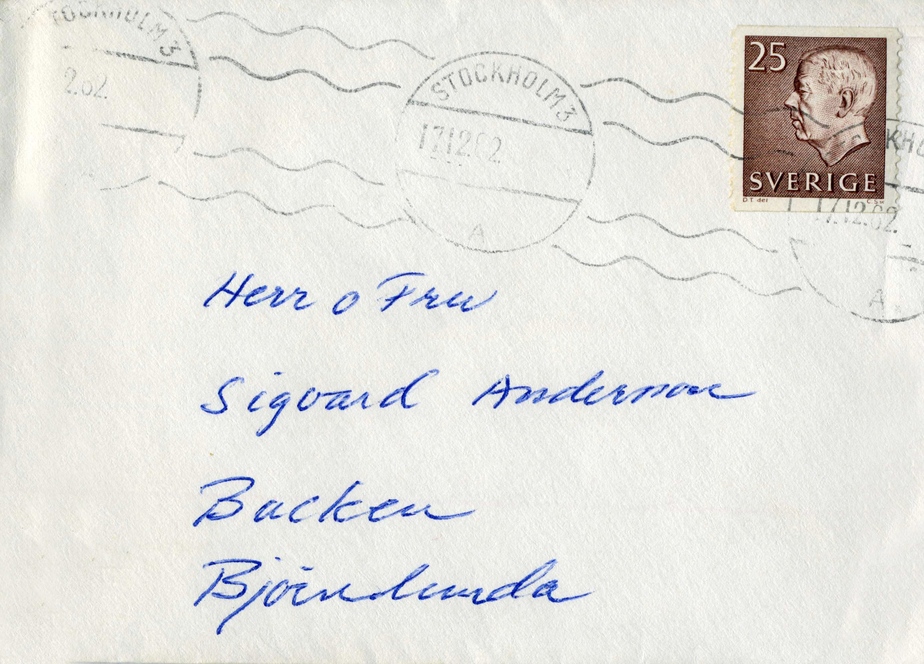 TOCKHOLM 3
2.62.
STOCKHOLM 3
17.12.62
A
25
SVERIGE
KHO
17.12.62.
A
Herr o Fru
Sigvard Andersson
Backen
Björnlunda